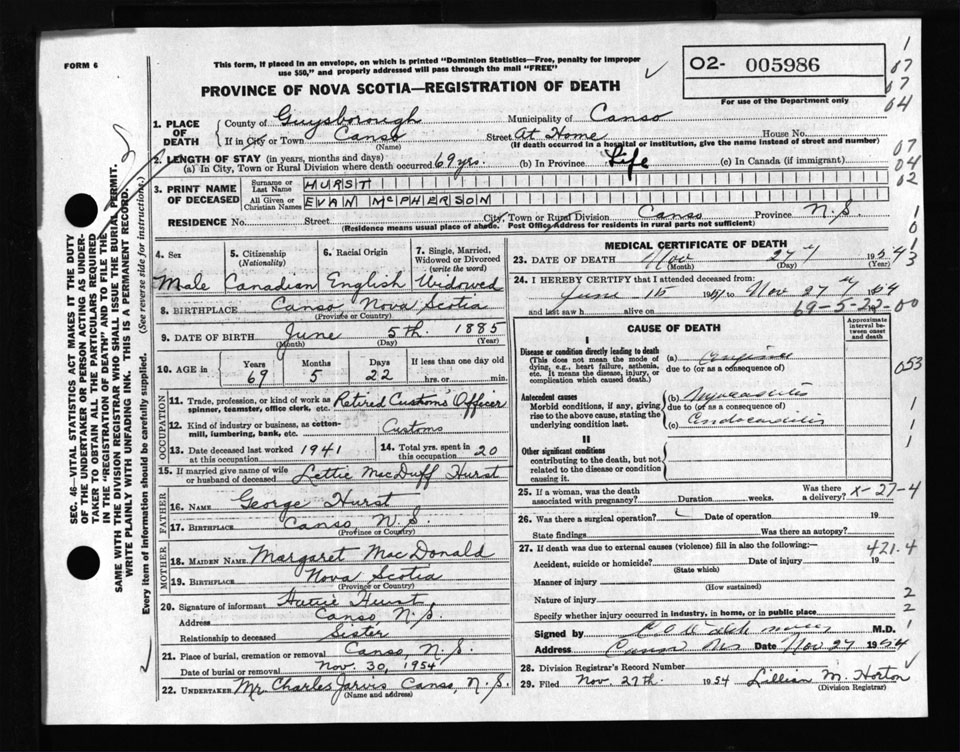 FORM 6
This form, if placed in an envelope, on which is printed "Dominion Statistics—Free, penalty for improper
use $50," and properly addressed will pass through the mail "FREE"
O2- 005986
For use of the Department only
PROVINCE OF NOVA SCOTIA—REGISTRATION OF DEATH
1. PLACE OF DEATH
County of Guysborough Municipality of Canso
If in City or Town Canso Street At Home House No.
(Name) (If death occurred in a hospital or institution, give the name instead of street and number)
2. LENGTH OF STAY (in years, months and days)
(a) In City, Town or Rural Division where death occurred 69 yrs. (b) In Province Life (c) In Canada (if immigrant)
3. PRINT NAME OF DECEASED
Surname or Last Name HURST
All Given or Christian Names EVAN McPHERSON
RESIDENCE No. Street City, Town or Rural Division Canso Province N.S.
(Residence means usual place of abode. Post Office Address for residents in rural parts not sufficient)
4. Sex Male
5. Citizenship (Nationality) Canadian
6. Racial Origin English
7. Single, Married, Widowed or Divorced (write the word) Widowed
8. BIRTHPLACE Canso Nova Scotia
(Province or Country)
9. DATE OF BIRTH June 5th. 1885
(Month) (Day) (Year)
10. AGE in Years 69 Months 5 Days 22 If less than one day old hrs. or min.
OCCUPATION
11. Trade, profession, or kind of work as spinner, teamster, office clerk, etc. Retired Customs Officer
12. Kind of industry or business, as cotton-mill, lumbering, bank, etc. Customs
13. Date deceased last worked at this occupation 1941
14. Total yrs. spent in this occupation 20
15. If married give name of wife or husband of deceased Lettie MacDuff Hurst
FATHER
16. NAME George Hurst
17. BIRTHPLACE Canso, N.S.
(Province or Country)
MOTHER
18. MAIDEN NAME Margaret MacDonald
19. BIRTHPLACE Nova Scotia
(Province or Country)
20. Signature of informant Hurst
Address Canso, N.S.
Relationship to deceased Sister
21. Place of burial, cremation or removal Canso, N.S.
Date of burial or removal Nov. 30, 1954
22. UNDERTAKER Mr. Charles Jarvis Canso, N.S.
(Name and address)
MEDICAL CERTIFICATE OF DEATH
23. DATE OF DEATH Nov 27 1954
(Month) (Day) (Year)
24. I HEREBY CERTIFY that I attended deceased from:
June 16 Nov 27
and last saw h alive on 69-5-22-00
CAUSE OF DEATH
Approximate interval between onset and death
I
Disease or condition directly leading to death
(This does not mean the mode of dying, e.g., heart failure, asthenia, etc. It means the disease, injury, or complication which caused death.)
(a)
due to (or as a consequence of)
Antecedent causes
Morbid conditions, if any, giving rise to the above cause, stating the underlying condition last.
(b) Myocarditis
due to (or as a consequence of)
(c) Endocarditis
II
Other significant conditions
contributing to the death, but not related to the disease or condition causing it.
25. If a woman, was the death associated with pregnancy? Duration weeks. Was there a delivery? X-27-4
26. Was there a surgical operation? Date of operation 19
State findings Was there an autopsy?
27. If death was due to external causes (violence) fill in also the following:— 421.4
Accident, suicide or homicide? Date of injury 19
(State which)
Manner of injury
(How sustained)
Nature of injury
Specify whether injury occurred in industry, in home, or in public place
Signed by M.D.
Address Canso NS Date Nov 27 1954
28. Division Registrar's Record Number
29. Filed Nov. 27th. 1954 Lillian M. Horton
(Division Registrar)
SEC. 46—VITAL STATISTICS ACT MAKES IT THE DUTY
OF THE UNDERTAKER OR PERSON ACTING AS UNDER-
TAKER TO OBTAIN ALL THE PARTICULARS REQUIRED
IN THE "REGISTRATION OF DEATH" AND TO FILE THE
SAME WITH THE DIVISION REGISTRAR WHO SHALL ISSUE THE BURIAL PERMIT.
WRITE PLAINLY WITH UNFADING INK. THIS IS A PERMANENT RECORD.
Every item of information should be carefully supplied. (See reverse side for instructions.)
1
07
07
04
07
04
02
10
13
053
1
1
1
2
2
1